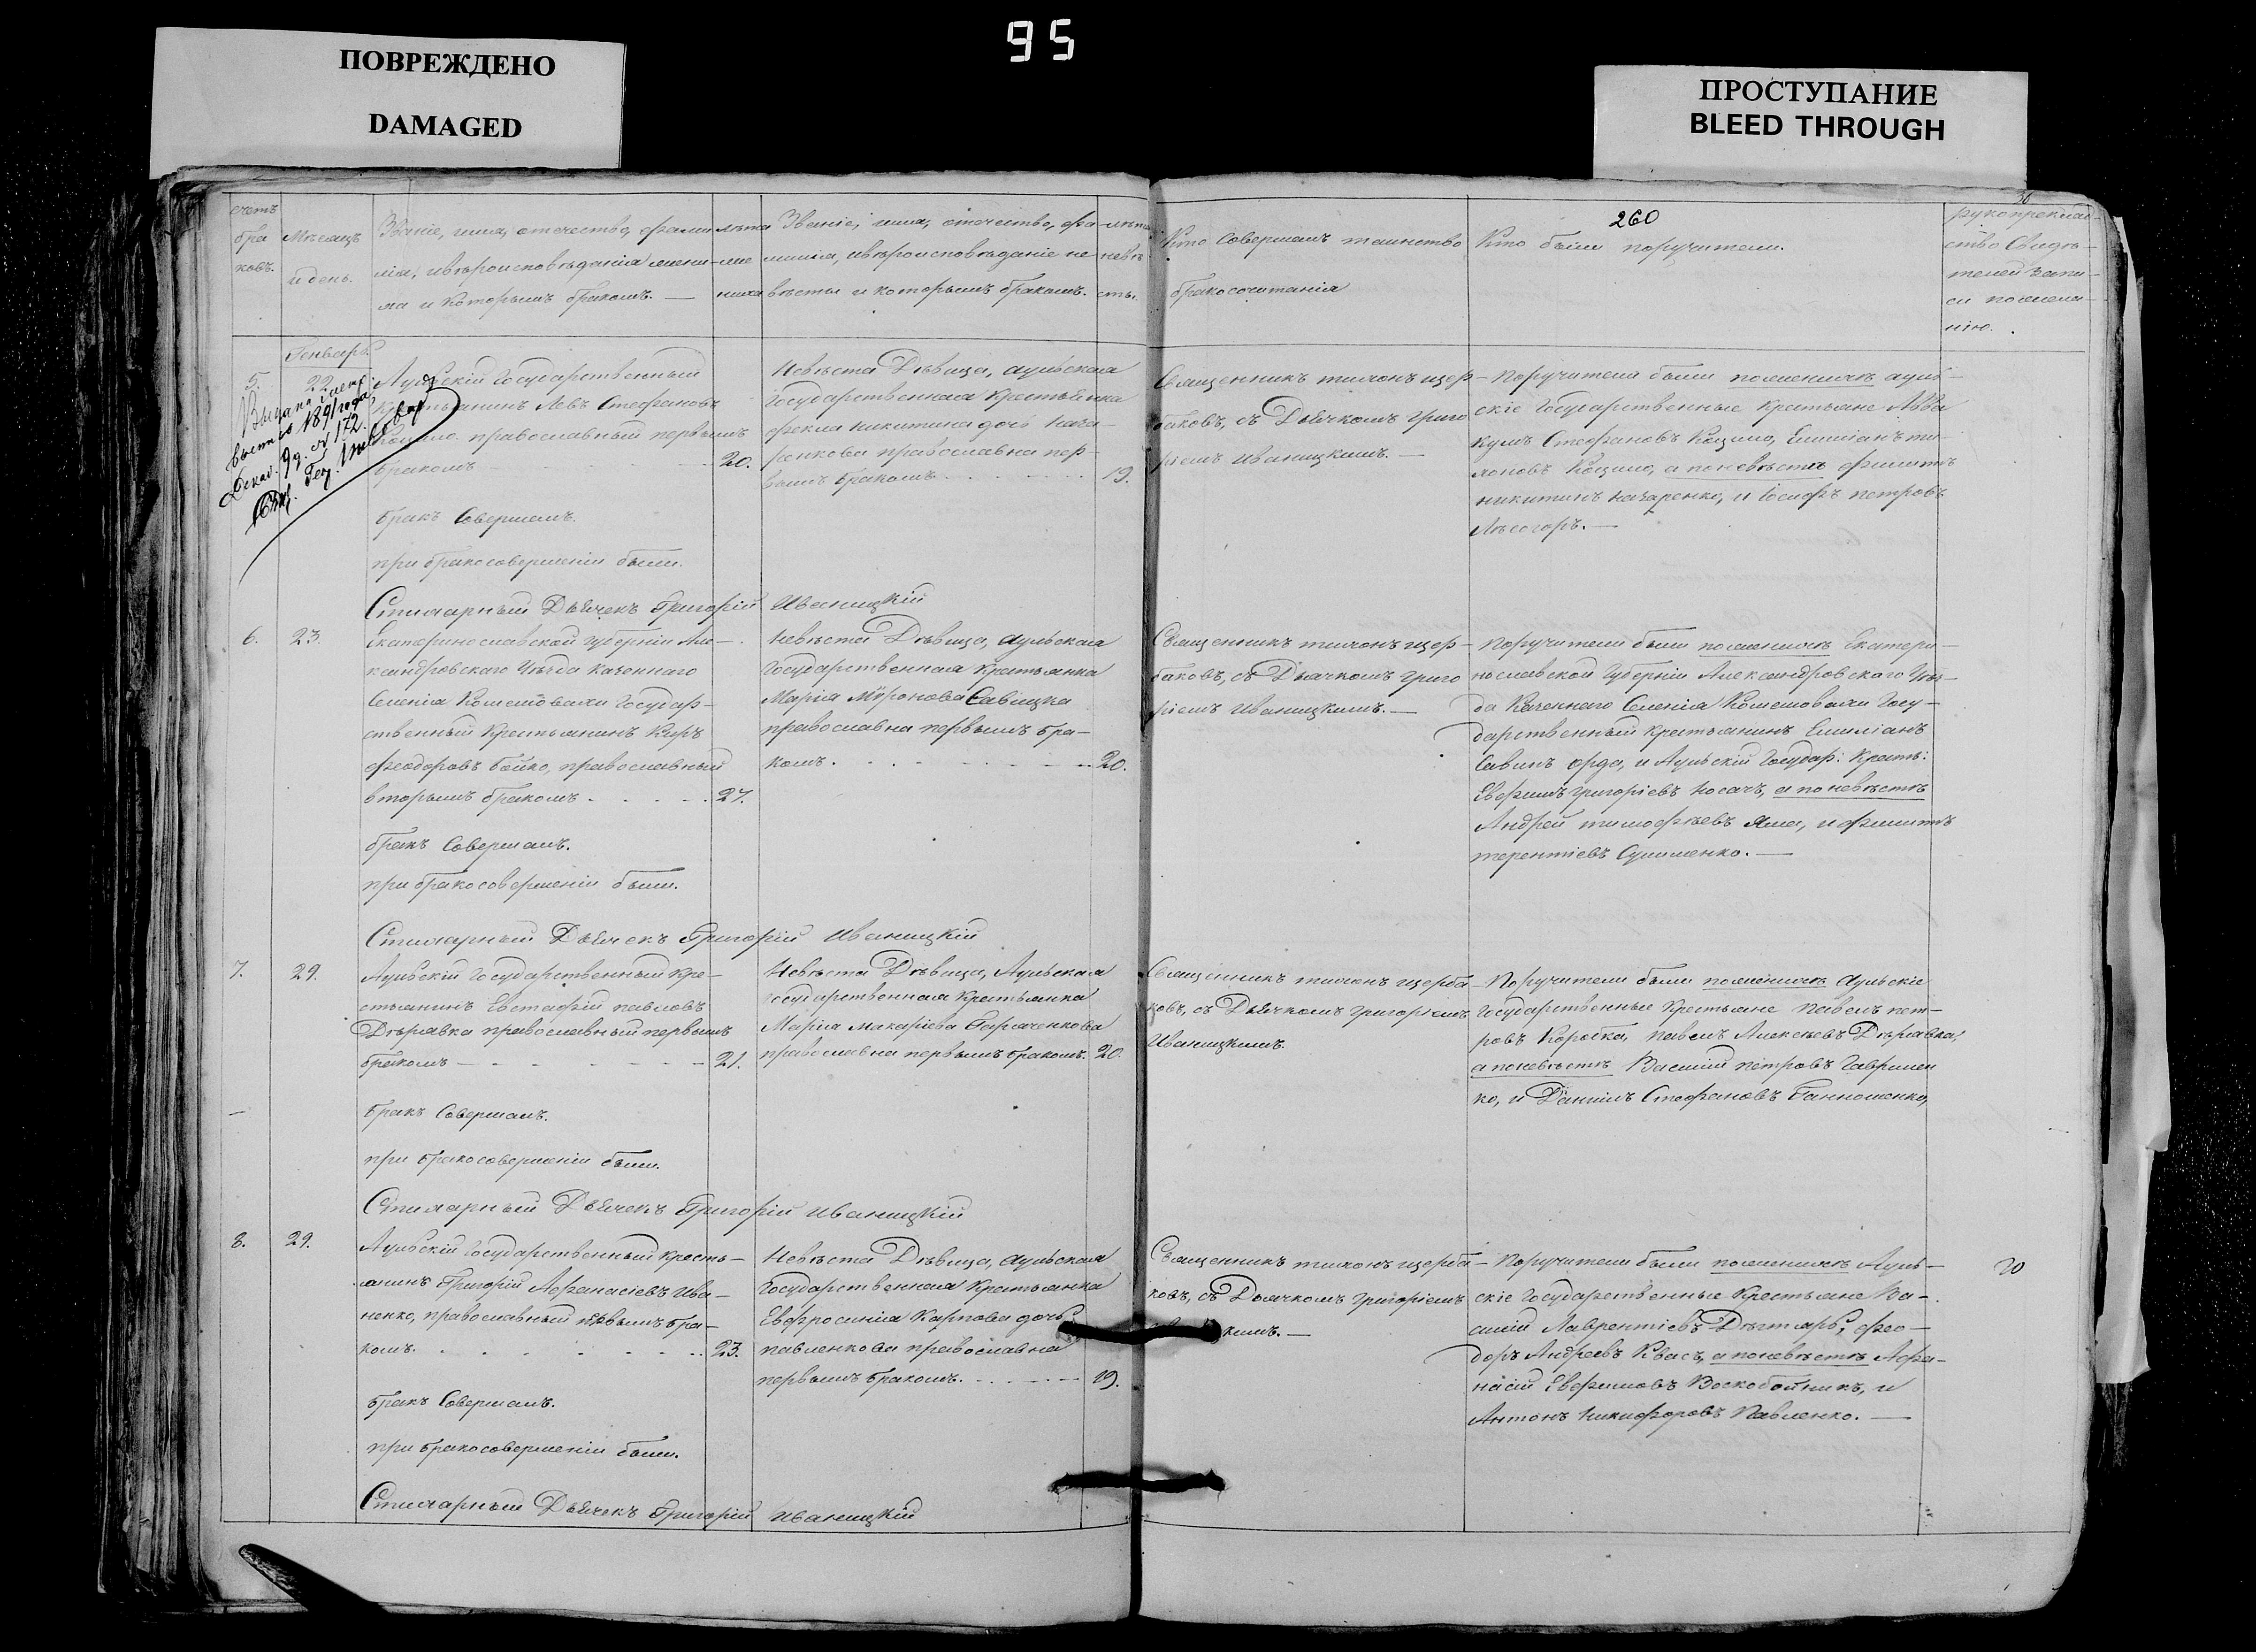 95
ПОВРЕЖДЕНО
DAMAGED
ПРОСТУПАНИЕ
BLEED THROUGH
260
счетъ
бра
ковъ.
Мѣсяцъ
и день.
Званіе, имя, отечество, фами
лія, и вѣроисповѣданія жени-
ха и которымъ бракомъ. —
лѣта
же
ниха
Званіе, имя, отечество, фа-
милія, и вѣроисповѣданіе не
вѣсты и которымъ бракомъ.
лѣта
невѣ
сты.
Кто совершалъ таинство
бракосочитанія
Кто были поручители.
рукоприклад-
ство свидѣ-
телей запи-
си по жела-
нію.
Генварь.
5.
22
Аульскій Государственный
крестьянинъ Левъ Стефановъ
Коцило. православный первымъ
бракомъ
20.
бракъ Совершалъ.
при бракосовершеніи были.
Стихарный Дьячекъ Григорій Иваницкій
Невѣста Дѣвица, аульская
Государственная крестьянка
Фекла Никитина дочь Наза-
ренкова православна пер-
вымъ бракомъ
19.
Священникъ Тихонъ Щер-
баковъ, съ Дьячкомъ Григо
ріемъ Иваницкимъ. —
Поручители были по женихѣ ауль-
скіе Государственные крестьяне Авва
кумъ Стефановъ Коцило, Емиліанъ
Коцило, а по невѣстѣ Филиппъ
Никитинъ Назаренко, и Іосифъ Петровъ
Лѣсогоръ. —
6.
23.
Екатеринославской Губерніи Але-
ксандровскаго Уѣзда казеннаго
Селенія Комышовахи Государ-
ственный крестьянинъ Киръ
Феодоровъ Бойко, православный
вторымъ бракомъ
27.
бракъ Совершалъ.
при бракосовершеніи были.
Стихарный Дьячекъ Григорій Иваницкій
Невѣста Дѣвица, аульская
Государственная крестьянка
Марія Миронова Савицка
православна первымъ бра-
комъ
20.
Священникъ Тихонъ Щер-
баковъ, съ Дьячкомъ Григо
ріемъ Иваницкимъ. —
Поручители были по женихѣ Екатери-
нославской Губерніи Александровскаго Уѣз-
да Казеннаго Селенія Комышовахи Госу-
дарственный крестьянинъ Емиліанъ
Савинъ Орда, и Аульскій Государ: Кресть:
Евфимъ Григоріевъ Носачъ, а по невѣстѣ
Андрей Тимофѣевъ Яма, и Филиппъ
Терентіевъ Сулименко. —
7.
29.
Аульскій Государственный кре-
стьянинъ Евстафій Павловъ
Дѣркавка православный первымъ
бракомъ
21.
бракъ Совершалъ.
при бракосовершеніи были.
Стихарный Дьячекъ Григорій Иваницкій
Невѣста Дѣвица, Аульская
Государственная крестьянка
Марія Макаріева Гармаченкова
православна первымъ бракомъ.
20.
Священникъ Тихонъ Щерба
ковъ, съ Дьячкомъ Григоріемъ
Иваницкимъ.
Поручители были по женихѣ Аульскіе
Государственные крестьяне Павелъ Пет-
ровъ Коротка, Павелъ Алексѣевъ Дѣркавка,
а по невѣстѣ Василій Петровъ Гаврилен
ко, и Даніилъ Стефановъ
8.
29.
Аульскій Государственный кресть-
янинъ Григорій Афанасіевъ Ива-
ненко, православный первымъ бра-
комъ.
23.
бракъ Совершалъ.
при бракосовершеніи были.
Стихарный Дьячекъ Григорій Иваницкій
Невѣста Дѣвица, аульская
Государственная Крестьянка
Евфросинія Карпова дочь
Павленкова православна
первымъ бракомъ.
19.
Священникъ Тихонъ Щерба-
ковъ, съ Дьячкомъ Григоріемъ
кимъ. —
Поручители были по женихѣ Ауль-
скіе Государственные Крестьяне Ва-
силій Лаврентіевъ Дѣгтярь, Фео-
доръ Андреевъ Квасъ, а по невѣстѣ Афа-
насій Евфимовъ Воскобойникъ, и
Антонъ Никифоровъ Павленко. —